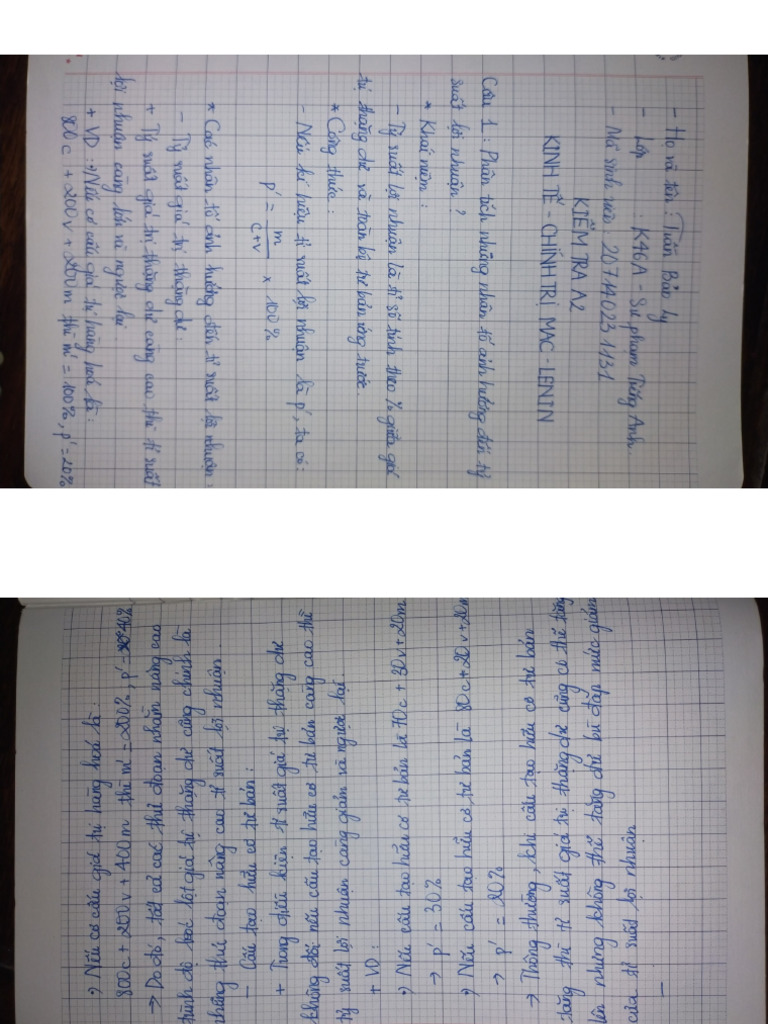 - Họ và tên : Trần Bảo Ly
- Lớp : K46A - Sư phạm Tiếng Anh
- Mã sinh viên 20714023 1131
KIỂM TRA A2
KINH TẾ - CHÍNH TRỊ MAC - LENIN
Câu 1 : Phân tích những nhân tố ảnh hưởng đến tỷ
suất lợi nhuận ?
* Khái niệm :
- Tỷ suất lợi nhuận là tỉ số tính theo % giữa giá
trị thặng dư và toàn bộ tư bản ứng trước
* Công thức :
- Nếu kí hiệu tỉ suất lợi nhuận là p', ta có:
p' = m / c+v × 100%
* Các nhân tố ảnh hưởng đến tỉ suất lợi nhuận :
- Tỷ suất giá trị thặng dư :
+ Tỷ suất giá trị thặng dư càng cao thì tỉ suất
lợi nhuận càng lớn và ngược lại
+ VD : •) Nếu cơ cấu giá trị hàng hoá là :
800c + 200v + 200m thì m' = 100%, p' = 20%
•) Nếu cơ cấu giá trị hàng hoá là :
800c + 200v + 400m thì m' = 200%, p' = 40%
→ Do đó, tất cả các thủ đoạn nhằm nâng cao
trình độ bóc lột giá trị thặng dư cũng chính là
những thủ đoạn nâng cao tỉ suất lợi nhuận.
- Cấu tạo hữu cơ tư bản :
+ Trong điều kiện tỉ suất giá trị thặng dư
không đổi nếu cấu tạo hữu cơ tư bản càng cao thì
tỷ suất lợi nhuận càng giảm và ngược lại
+ VD :
•) Nếu cấu tạo hữu cơ tư bản là 70c + 30v + 20m
→ p' = 30%
•) Nếu cấu tạo hữu cơ tư bản là 80c + 20v + 20m
→ p' = 20%
→ Thông thường, khi cấu tạo hữu cơ tư bản
tăng thì tỉ suất giá trị thặng dư cũng có thể tăng
lên nhưng không thể tăng đủ bù đắp mức giảm
của tỉ suất lợi nhuận